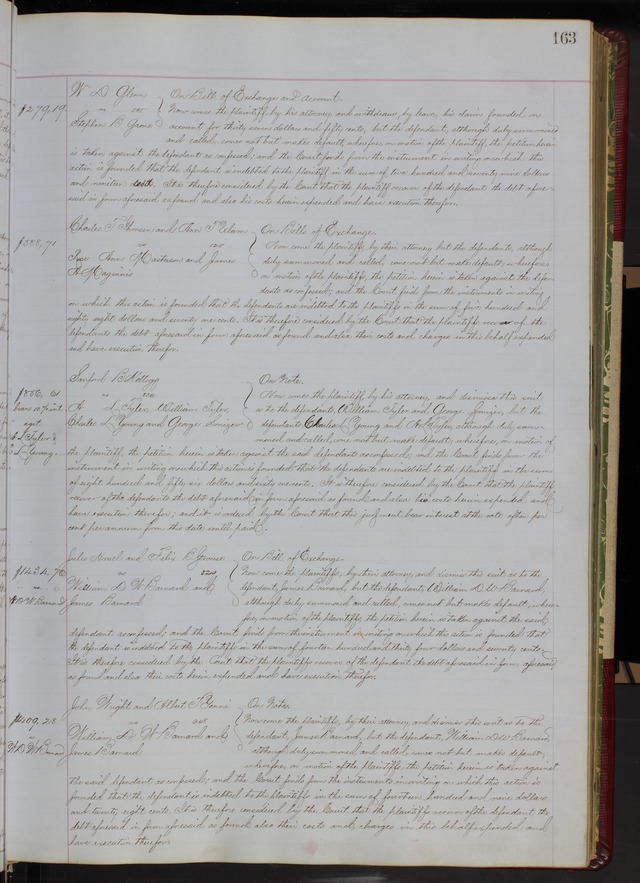 163
W. D. Glenn } On Bill of Exchange and Account.
$279,19 vs Now comes the plaintiff, by his attorney and withdraws, by leave, his claim founded on
Stephen B. account for thirty seven dollars and fifty cents, but the defendant, although duly summoned
and called, comes not but makes default; wherefore, on motion of the plaintiff, the petition herein
is taken against the defendant as confessed; and the Court finds from the instrument in writing on which this
action is founded that the defendant is indebted to the plaintiff in the sum of two hundred and seventy nine dollars
and nineteen cents. It is therefore considered by the Court that the plaintiff recover of the defendant the debt afore-
said in form aforesaid as found and also his costs herein expended and have execution therefor.
Charles F. and } On Bills of Exchange.
$588,71 vs Now come the plaintiffs by their attorney but the defendants, although
Ann and James duly summoned and called, come not but make default; wherefore
H. Maginnis on motion of the plaintiffs, the petition herein is taken against the defen-
dants as confessed; and the Court finds from the instruments in writing
on which this action is founded that the defendants are indebted to the plaintiffs in the sum of five hundred and
eighty eight dollars and seventy one cents. It is therefore considered by the Court that the plaintiffs recover of the
defendants the debt aforesaid in form aforesaid as found and also their costs and charges in this behalf expended
and have execution therefor.
Sanford B. Kellogg } On Note.
$856, vs Now comes the plaintiff by his attorney, and dismisses this suit
bears 10 pr int L. Tyler, William Tyler, as to the defendants, William Tyler and George, but the
agst Charles L. Young and George defendants Charles L. Young and Tyler, although duly sum-
L. Tyler & moned and called, come not but make default; wherefore, on motion of
L. Young. the plaintiff, the petition herein is taken against the said defendants as confessed; and the Court finds from the
instrument in writing on which this action is founded that the defendants are indebted to the plaintiff in the sum
of eight hundred and fifty six dollars and sixty cents. It is therefore considered by the Court that the plaintiff
recover of the defendants the debt aforesaid in form aforesaid as found and also his costs herein expended and
have execution therefor; and it is ordered by the Court that this judgment bear interest at the rate of ten per
cent per annum from this date until paid.
Jules and Felix } On Bill of Exchange.
$1434,70 vs Now come the plaintiffs, by their attorney, and dismiss this suit as to the
William D. W. Barnard and defendant, James Barnard, but the defendant, William D. W. Barnard,
W. D. W. Barnard James Barnard although duly summoned and called, comes not but makes default; where-
fore, on motion of the plaintiffs, the petition herein is taken against the said
defendant as confessed; and the Court finds from the instrument in writing on which this action is founded that
the defendant is indebted to the plaintiffs in the sum of fourteen hundred and thirty four dollars and seventy cents.
It is therefore considered by the Court that the plaintiffs recover of the defendant the debt aforesaid in form aforesaid
as found and also their costs herein expended and have execution therefor.
John Wright and Albert } On Note.
$1409,28 vs Now come the plaintiffs, by their attorney, and dismiss this suit as to the
William D. W. Barnard and defendant, James Barnard, but the defendant, William D. W. Barnard,
W. D. W. Barnard James Barnard although duly summoned and called, comes not but makes default;
wherefore, on motion of the plaintiffs, the petition herein is taken against
the said defendant as confessed; and the Court finds from the instruments in writing on which this action is
founded that the defendant is indebted to the plaintiffs in the sum of fourteen hundred and nine dollars
and twenty eight cents. It is therefore considered by the Court that the plaintiffs recover of the defendant the
debt aforesaid in form aforesaid as found also their costs and charges in this behalf expended and
have execution therefor.